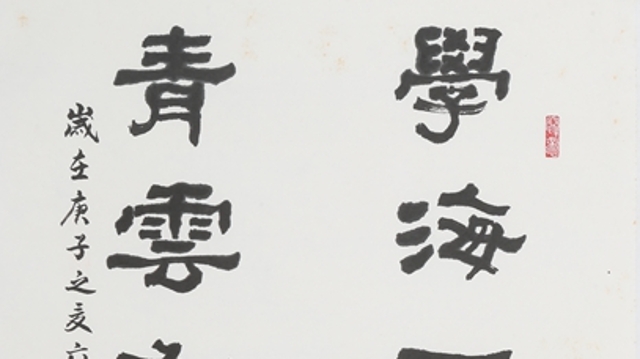 學海
青雲
歲在庚子之